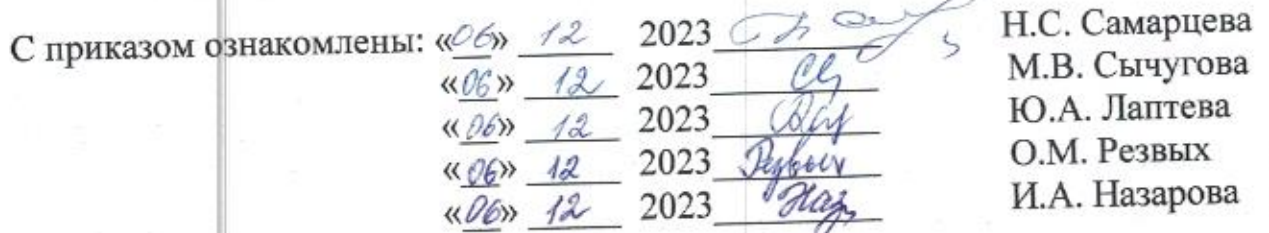 С приказом ознакомлены: «06» 12 2023 Н.С. Самарцева
«06» 12 2023 М.В. Сычугова
«06» 12 2023 Ю.А. Лаптева
«06» 12 2023 Резвых О.М. Резвых
«06» 12 2023 Наз И.А. Назарова